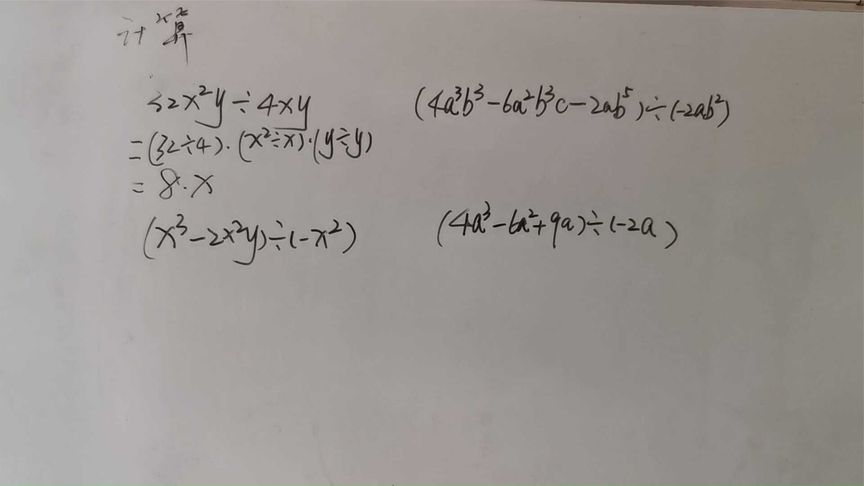 计算
32x²y÷4xy
=(32÷4)·(x²÷x)·(y÷y)
=8·x
(4a³b³-6a²b³c-2ab⁵)÷(-2ab²)
(x³-2x²y)÷(-x²)
(4a³-6a²+9a)÷(-2a)